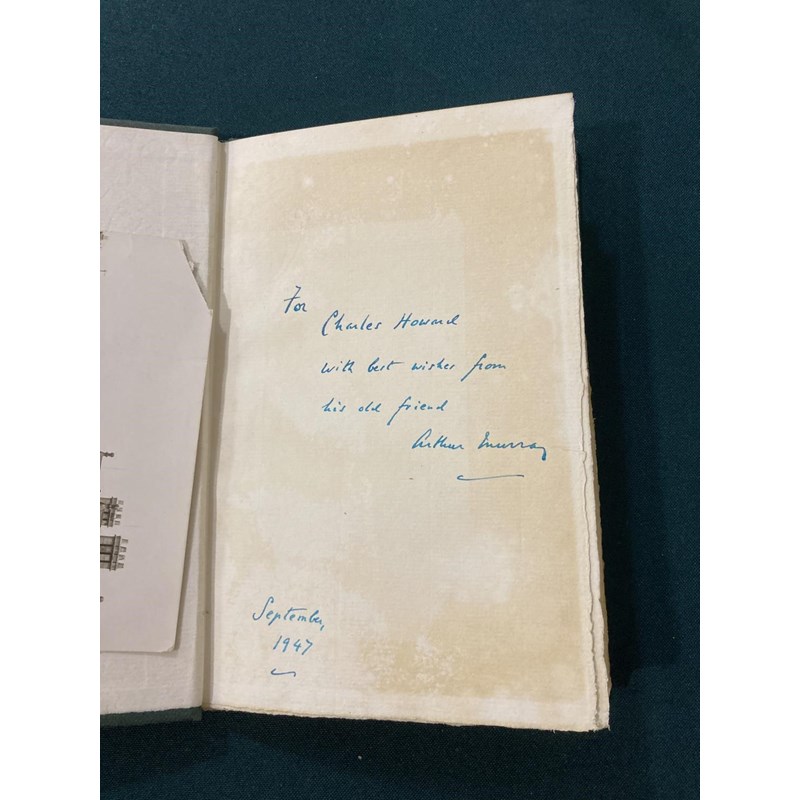 For
Charles Howard
with best wishes from
his old friend
Arthur Murray
September,
1947